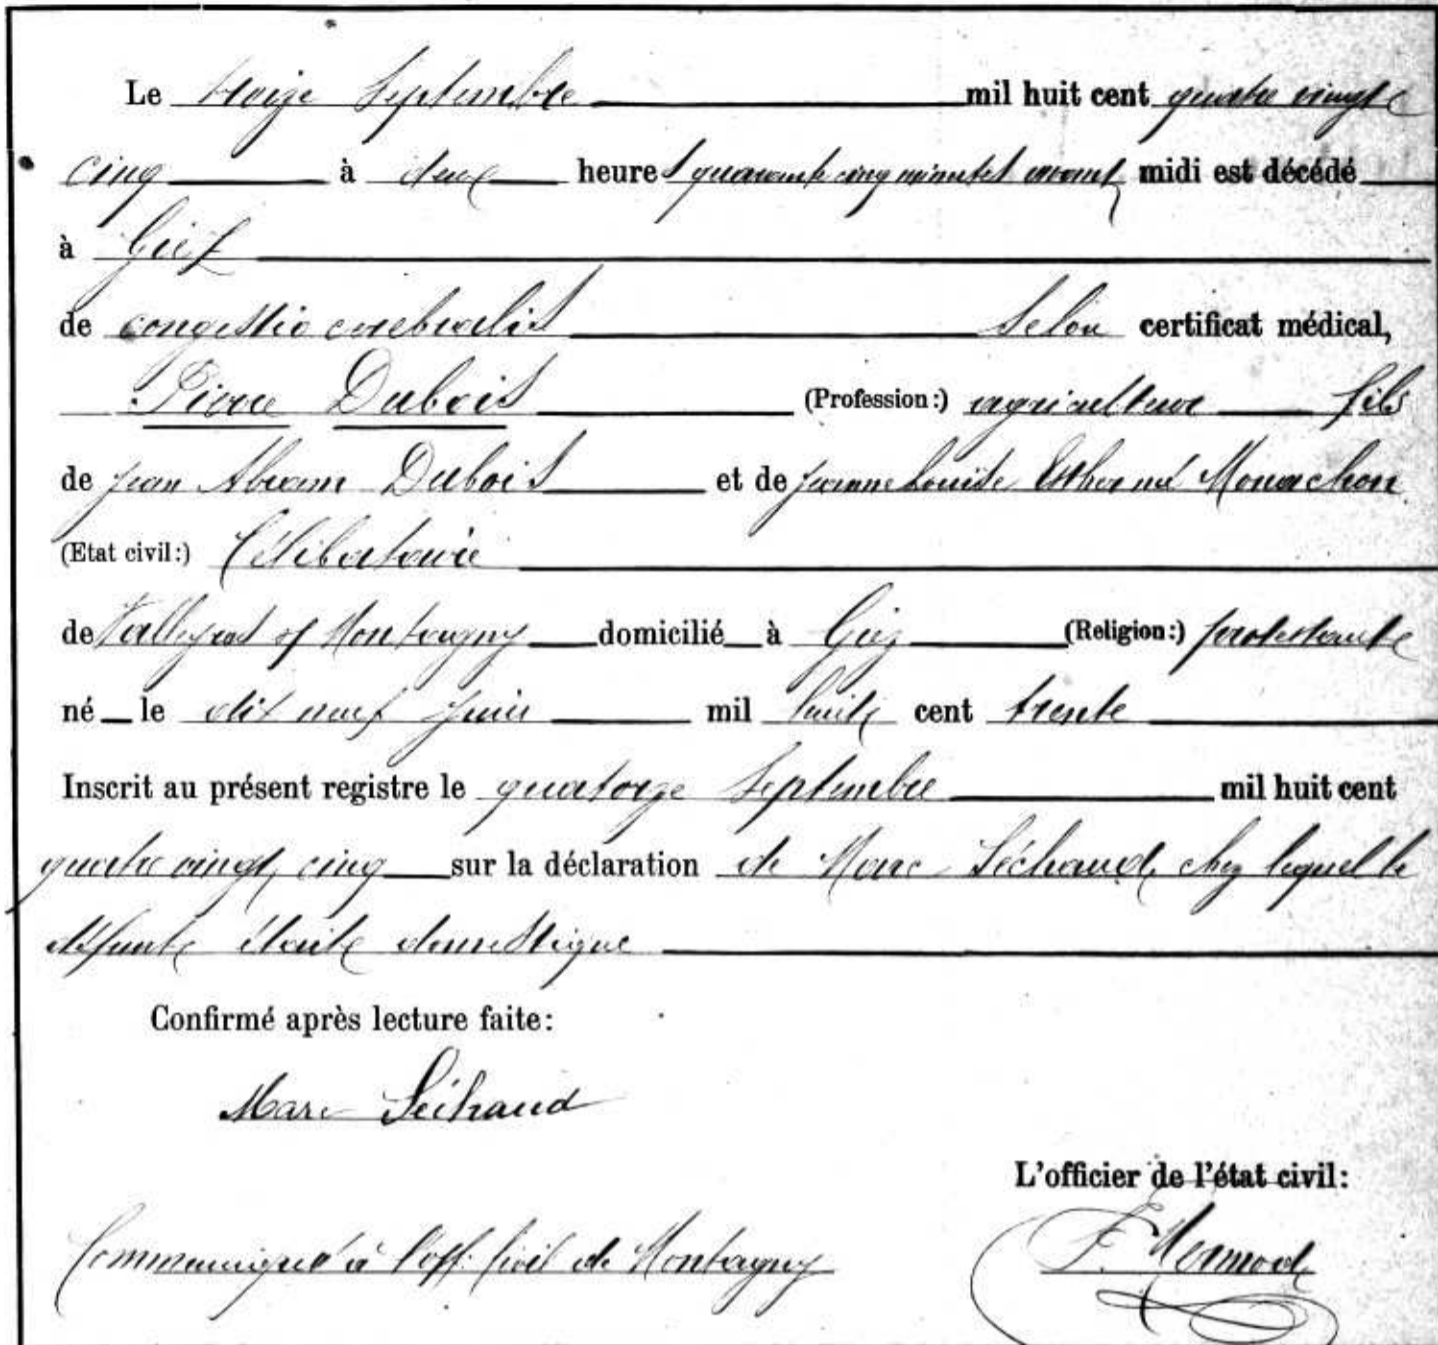 Le treize Septembre mil huit cent quatre vingt
cinq à deux heures quarante cinq minutes avant midi est décédé
à Giez
de congestio cerebralis Selon certificat médical,
Pierre Dubois (Profession:) agriculteur fils
de Jean Abram Dubois et de Jeanne Louise Esther née Monachon
(Etat civil:) Célibataire
de Valleyres s/ Montagny domicilié à Giez (Religion:) protestante
né le dix neuf Juin mil huit cent trente
Inscrit au présent registre le quatorze Septembre mil huit cent
quatre vingt cinq sur la déclaration de Marc Séchaud, chez lequel le
défunt était domestique
Confirmé après lecture faite:
Marc Séchaud
L'officier de l'état civil:
Communiqué à l'off. civil de Montagny
F. Mermod